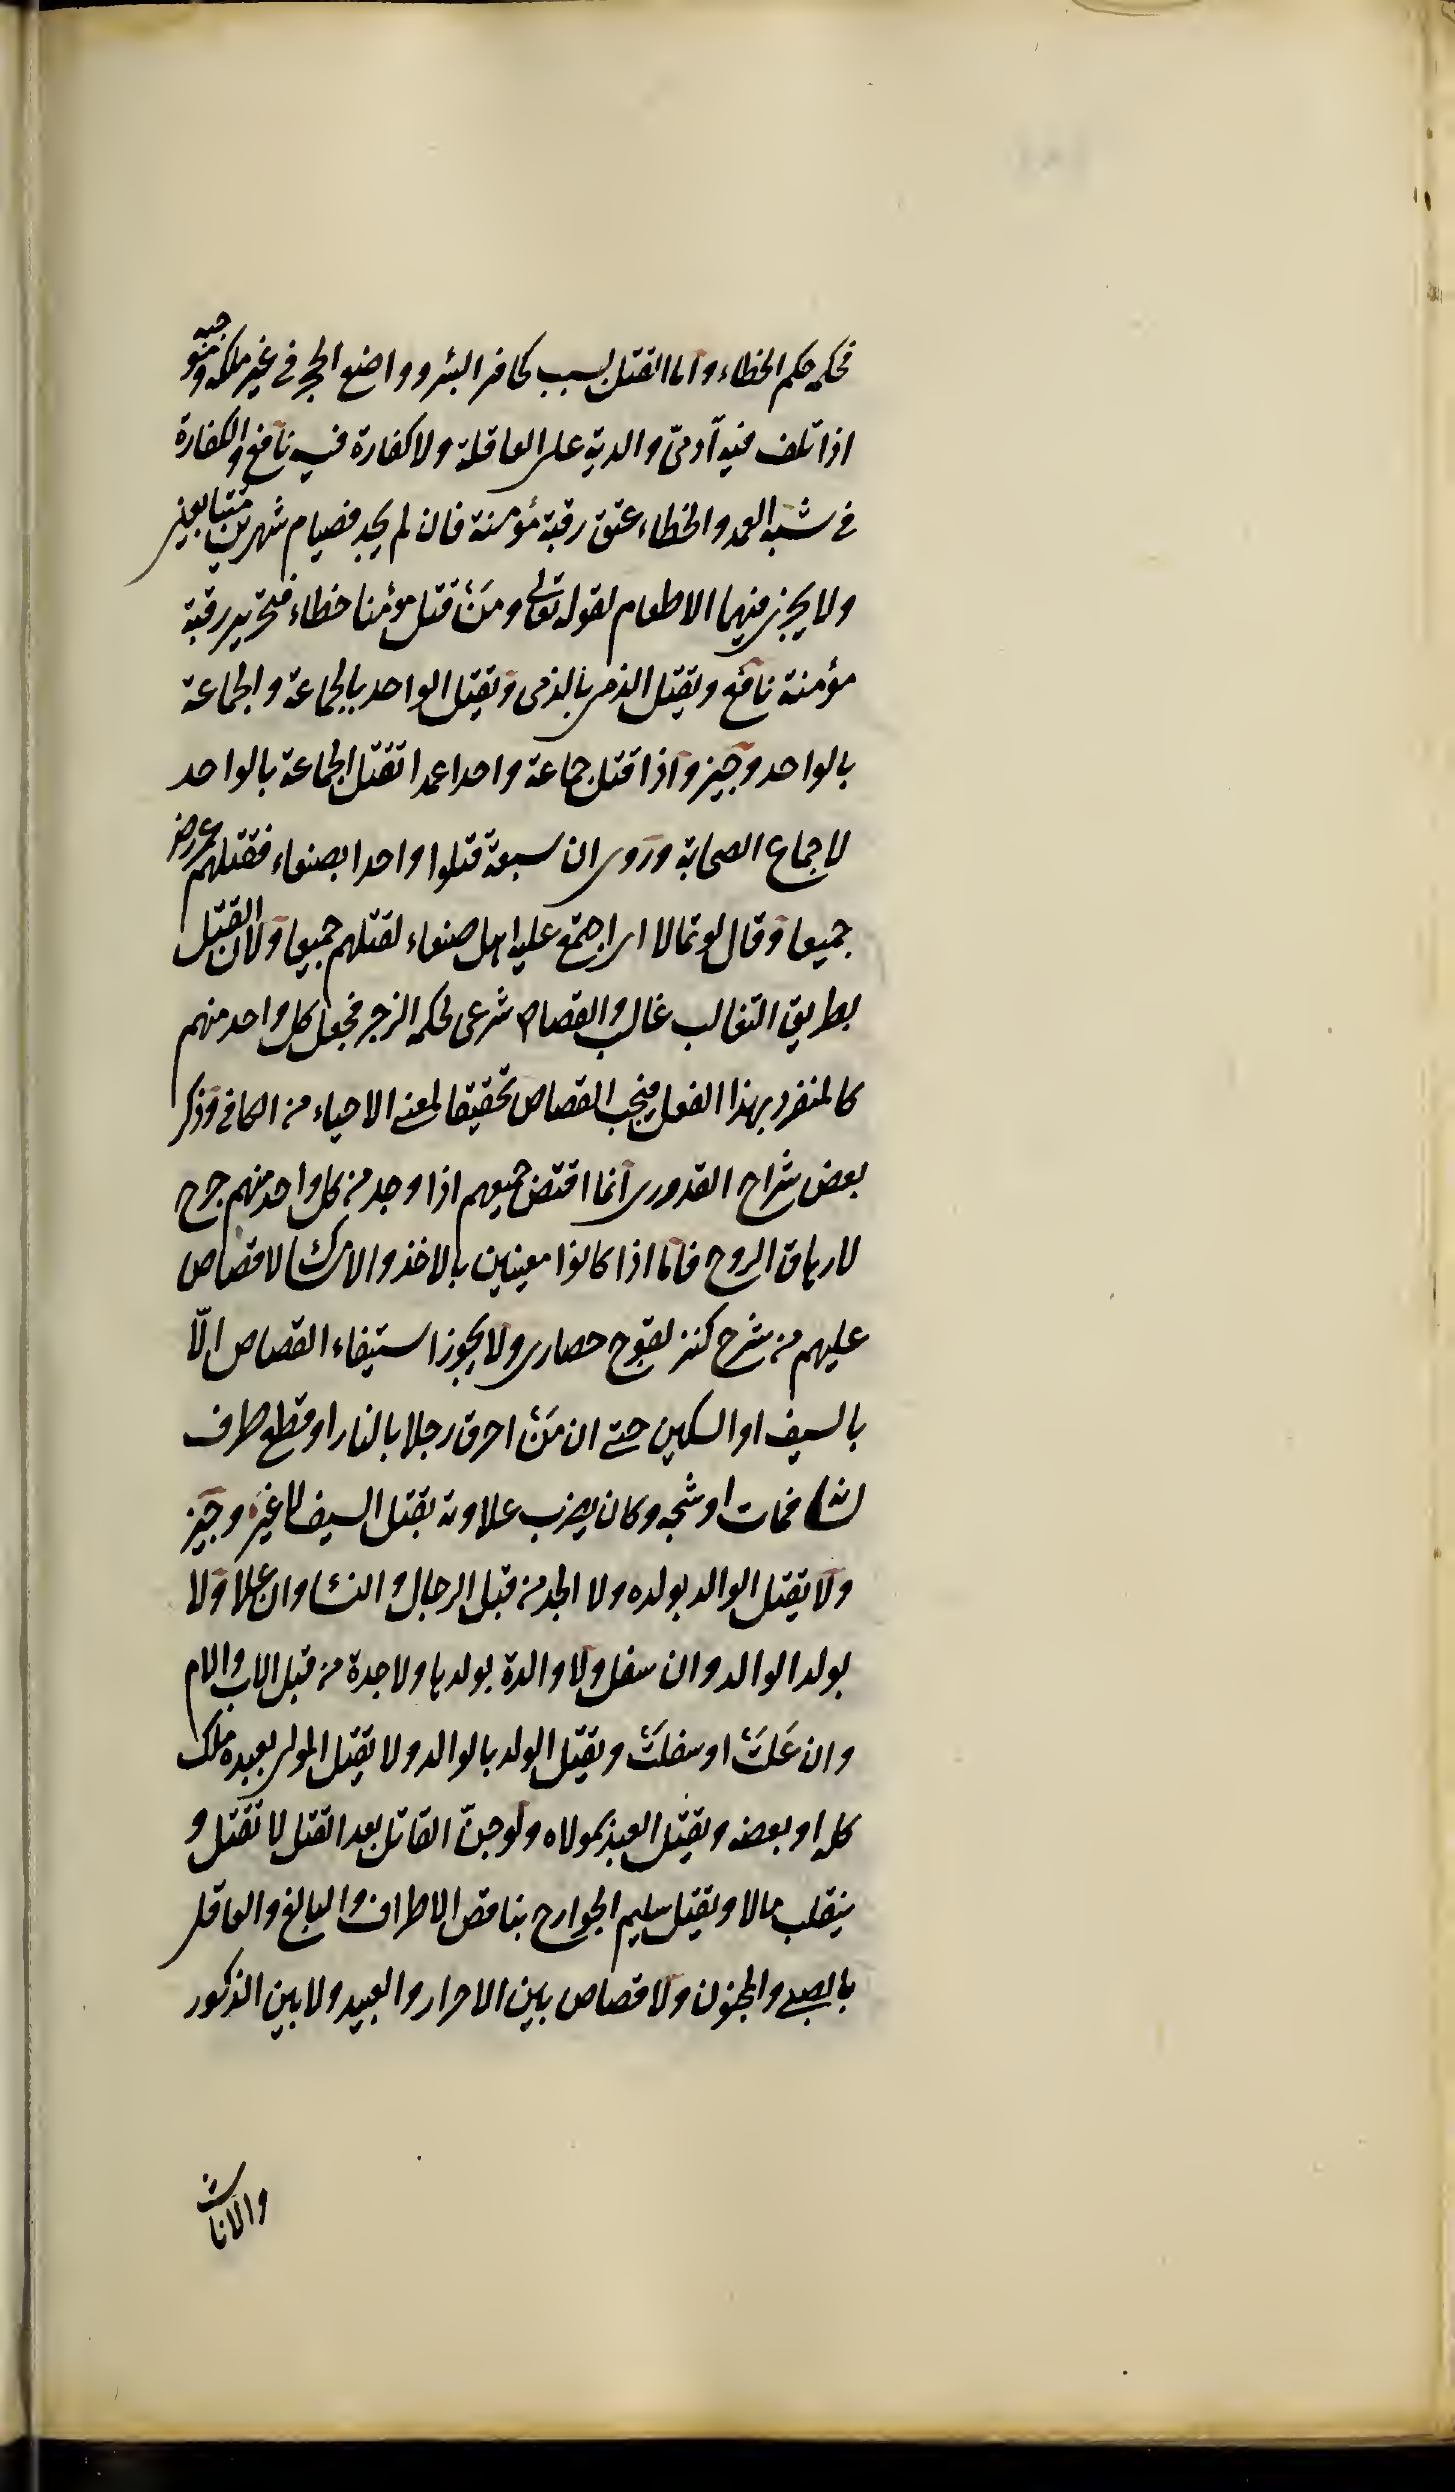 فحكمه حكم الخطاء واما القتل بسبب كحافر البئر وواضع الحجر فى غير ملكه وموجبه
اذا تلف فيه آدمىّ والدية على العاقلة ولا كفارة فيه نافع والكفارة
فى شبه العمد والخطاء عتق رقبة مؤمنة فان لم يجد فصيام شهرين متتابعين
ولا يجزى فيهما الاطعام لقوله تعالى ومَنْ قتل مؤمنا خطاء فتحرير رقبة
مؤمنة نافع ويقتل الذمى بالذمى ويقتل الواحد بالجماعة والجماعة
بالواحد وجيز واذا قتل جماعة واحدا عمدا تقتل الجماعة بالواحد
لاجماع الصحابة وروى ان سبعة قتلوا واحدا بصنعاء فقتلهم عمر رض
جميعا وقال لو تمالا اى اجتمع عليه اهل صنعاء لقتلهم جميعا ولان القتل
بطريق التغالب غالب والقصاص شرعى لحكمه الزجر فجعل كل واحد منهم
كالمنفرد بهذا الفعل فيجب القصاص تحقيقا لمعنى الاحياء من الكافى وذكر
بعض شراح القدورى انما اقتص جميعهم اذا وجد من كل واحد منهم جرح
لارهاق الروح فاما اذا كانوا معينين بالاخذ والامساك لا قصاص
عليهم من شرح كنز لقوج حصارى ولا يجوز استيفاء القصاص الّا
بالسيف او السكين حتى ان مَنْ احرق رجلا بالنار او قطع طرف
انسان فمات او شجه وكان يضرب علاوته بقتل السيف لا غير وجيز
ولا يقتل الوالد بولده ولا الجد من قبل الرجال والنساء وان علا ولا
بولد الوالد وان سفل ولا والدة بولدها ولا جدة من قبل الاب والام
وان عَلَتْ او سفلَتْ ويقتل الولد بالوالد ولا يقتل المولى بعبده ملك
كله او بعضه ويقتل العبد بمولاه ولو جنّ القاتل بعد القتل لا تقتل و
ينقلب مالا ويقتل سليم الجوارح بناقص الاطراف والبالغ والعاقل
بالصبى والمجنون ولا قصاص بين الاحرار والعبيد ولا بين الذكور
والاناث